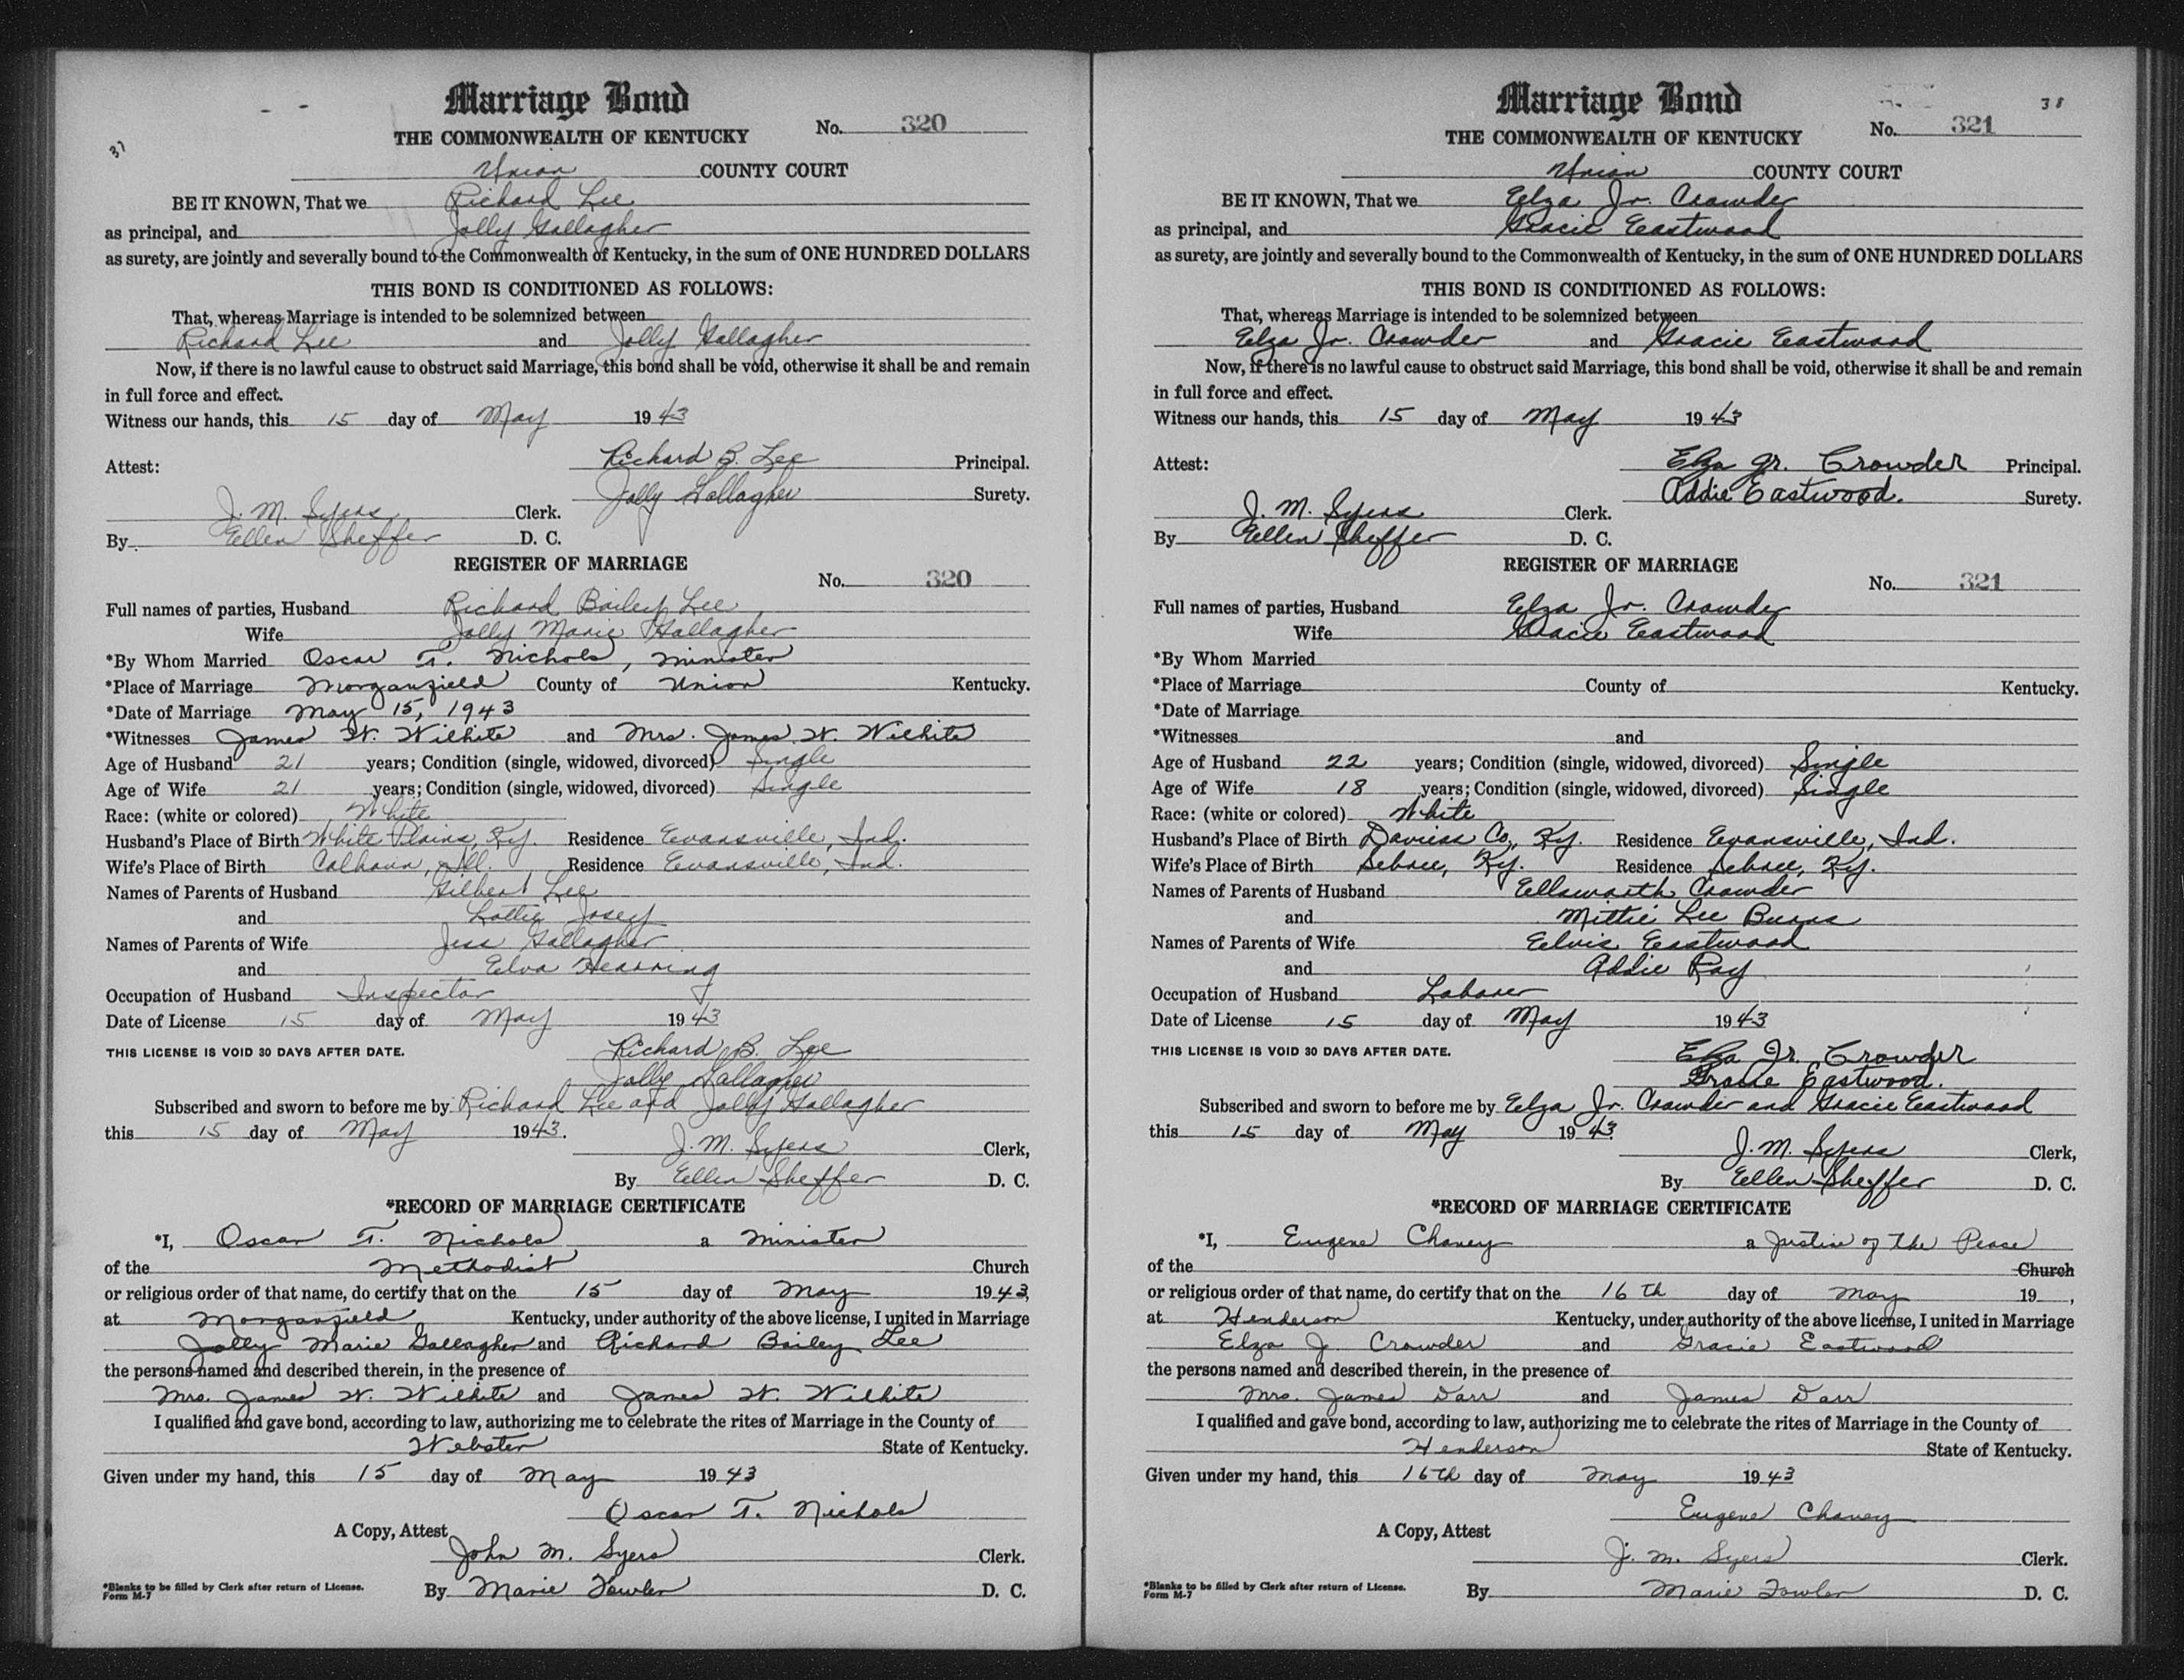 37
Marriage Bond
THE COMMONWEALTH OF KENTUCKY No. 320
Union COUNTY COURT
BE IT KNOWN, That we Richard Lee
as principal, and Jolly Gallagher
as surety, are jointly and severally bound to the Commonwealth of Kentucky, in the sum of ONE HUNDRED DOLLARS
THIS BOND IS CONDITIONED AS FOLLOWS:
That, whereas Marriage is intended to be solemnized between
Richard Lee and Jolly Gallagher
Now, if there is no lawful cause to obstruct said Marriage, this bond shall be void, otherwise it shall be and remain
in full force and effect.
Witness our hands, this 15 day of May 1943
Richard B. Lee Principal.
Attest:
Jolly Gallagher Surety.
J. M. Syers Clerk.
By Ellen Sheffer D. C.
REGISTER OF MARRIAGE
No. 320
Full names of parties, Husband Richard Bailey Lee
Wife Jolly Marie Gallagher
*By Whom Married Oscar T. Nichols, minister
*Place of Marriage Morganfield County of Union Kentucky.
*Date of Marriage May 15, 1943
*Witnesses James W. Wilhite and Mrs. James W. Wilhite
Age of Husband 21 years; Condition (single, widowed, divorced) Single
Age of Wife 21 years; Condition (single, widowed, divorced) Single
Race: (white or colored) White
Husband's Place of Birth White Plains, Ky. Residence Evansville, Ind.
Wife's Place of Birth Calhoun, Ill. Residence Evansville, Ind.
Names of Parents of Husband Gilbert Lee
and Lottie Josey
Names of Parents of Wife Jess Gallagher
and Elva Hearring
Occupation of Husband Inspector
Date of License 15 day of May 1943
THIS LICENSE IS VOID 30 DAYS AFTER DATE. Richard B. Lee
Jolly Gallagher
Subscribed and sworn to before me by Richard Lee and Jolly Gallagher
this 15 day of May 1943.
J. M. Syers Clerk,
By Ellen Sheffer D. C.
*RECORD OF MARRIAGE CERTIFICATE
*I, Oscar T. Nichols a minister
of the Methodist Church
or religious order of that name, do certify that on the 15 day of May 1943,
at Morganfield Kentucky, under authority of the above license, I united in Marriage
Jolly Marie Gallagher and Richard Bailey Lee
the persons named and described therein, in the presence of
Mrs. James W. Wilhite and James W. Wilhite
I qualified and gave bond, according to law, authorizing me to celebrate the rites of Marriage in the County of
Webster State of Kentucky.
Given under my hand, this 15 day of May 1943
Oscar T. Nichols
A Copy, Attest
John M. Syers Clerk.
*Blanks to be filled by Clerk after return of License.
Form M-7
By Marie Fowler D. C.
38
Marriage Bond
THE COMMONWEALTH OF KENTUCKY No. 321
Union COUNTY COURT
BE IT KNOWN, That we Elza Jr. Crowder
as principal, and Gracie Eastwood
as surety, are jointly and severally bound to the Commonwealth of Kentucky, in the sum of ONE HUNDRED DOLLARS
THIS BOND IS CONDITIONED AS FOLLOWS:
That, whereas Marriage is intended to be solemnized between
Elza Jr. Crowder and Gracie Eastwood
Now, if there is no lawful cause to obstruct said Marriage, this bond shall be void, otherwise it shall be and remain
in full force and effect.
Witness our hands, this 15 day of May 1943
Attest: Elza Jr. Crowder Principal.
Addie Eastwood. Surety.
J. M. Syers Clerk.
By Ellen Sheffer D. C.
REGISTER OF MARRIAGE
No. 321
Full names of parties, Husband Elza Jr. Crowder
Wife Gracie Eastwood
*By Whom Married
*Place of Marriage County of Kentucky.
*Date of Marriage
*Witnesses and
Age of Husband 22 years; Condition (single, widowed, divorced) Single
Age of Wife 18 years; Condition (single, widowed, divorced) Single
Race: (white or colored) White
Husband's Place of Birth Daviess Co., Ky. Residence Evansville, Ind.
Wife's Place of Birth Sebree, Ky. Residence Sebree, Ky.
Names of Parents of Husband Ellsworth Crowder
and Mittie Lee Burns
Names of Parents of Wife Elvis Eastwood
and Addie Ray
Occupation of Husband Laborer
Date of License 15 day of May 1943
THIS LICENSE IS VOID 30 DAYS AFTER DATE. Elza Jr. Crowder
Gracie Eastwood.
Subscribed and sworn to before me by Elza Jr. Crowder and Gracie Eastwood
this 15 day of May 1943
J. M. Syers Clerk,
By Ellen Sheffer D. C.
*RECORD OF MARRIAGE CERTIFICATE
*I, Eugene Chaney a Justice of the Peace
of the Church
or religious order of that name, do certify that on the 16th day of May 19 ,
at Henderson Kentucky, under authority of the above license, I united in Marriage
Elza J. Crowder and Gracie Eastwood
the persons named and described therein, in the presence of
Mrs. James Darr and James Darr
I qualified and gave bond, according to law, authorizing me to celebrate the rites of Marriage in the County of
Henderson State of Kentucky.
Given under my hand, this 16th day of May 1943
Eugene Chaney
A Copy, Attest
J. M. Syers Clerk.
*Blanks to be filled by Clerk after return of License.
Form M-7
By Marie Fowler D. C.